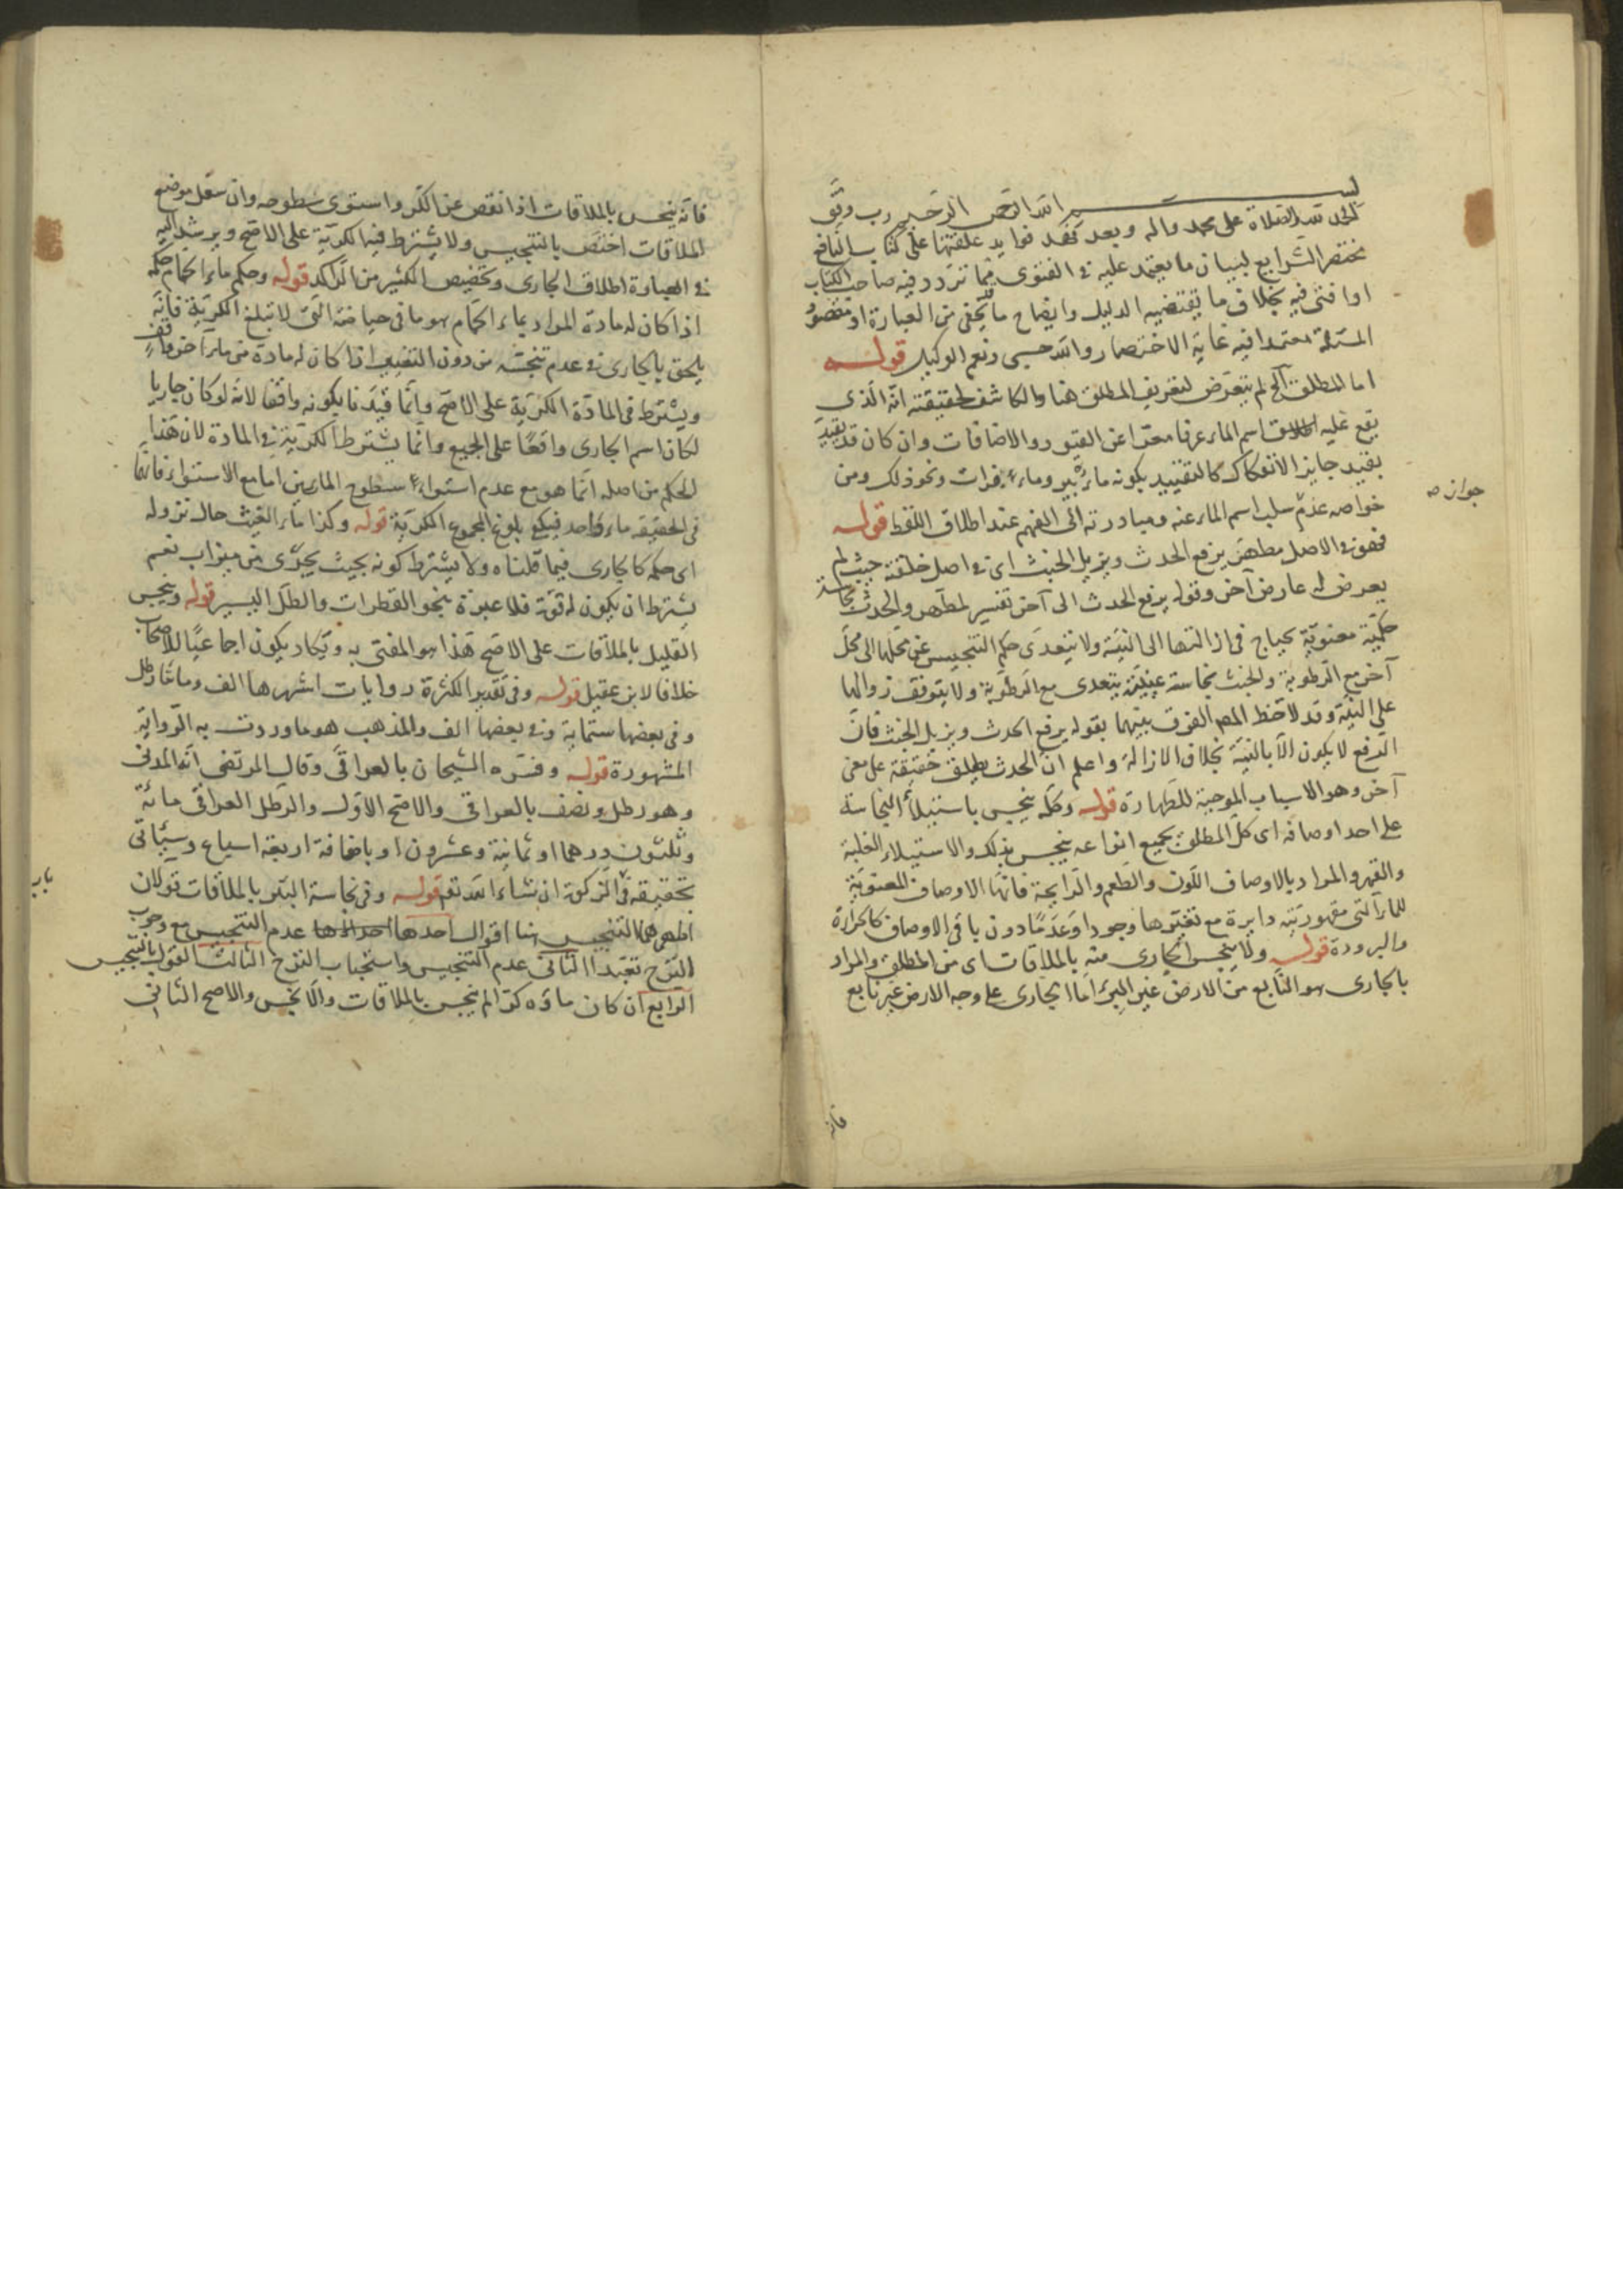 بسم الله الرحمن الرحيم رب وفق
الحمد لله والصلاة على محمد وآله وبعد فهذه فوايد علقتها على كتاب النافع
مختصر الشرايع لبيان ما يعتمد عليه في الفتوى مما تردد فيه صاحب الكتاب
او افتى فيه بخلاف ما يقتضيه الدليل وايضاح ما يخفى من العبارة او مقصود
المسئلة معتمدا فيه غاية الاختصار والله حسبي ونعم الوكيل قوله
اما المطلق الخ لم يتعرض لتعريف المطلق هنا والكاشف لحقيقته انه الذي
يقع عليه اطلاق اسم الماء عرفا معرا عن القيود والاضافات وان كان قد يقيد
بقيد جايز الانفكاك كالتقييد بكونه ماء بئر وماء فرات ونحو ذلك ومن
خواصه عدم سلب اسم الماء عنه ومبادرته الى الفهم عند اطلاق اللفظ قوله
فهو في الاصل مطهر يرفع الحدث ويزيل الخبث اى في اصل خلقته حيث لم
يعرض له عارض آخر وقوله يرفع الحدث الى آخر تفسير لمطهر والحدث نجاسة
حكمية معنوية يحتاج في ازالتها الى النية ولا يتعدى حكم التنجيس عن محلها الى محل
آخر مع الرطوبة والخبث نجاسة عينية يتعدى مع الرطوبة ولا يتوقف زوالها
على النية وقد لاحظ المصـ الفرق بينهما بقوله يرفع الحدث ويزيل الخبث فان
الرفع لا يكون الا بالنية بخلاف الازالة واعلم ان الحدث يطلق حقيقة على معنى
آخر وهو الاسباب الموجبة للطهارة قوله وكله ينجس باستيلاء النجاسة
على احد اوصافه اى كل المطلق بجميع انواعه ينجس بذلك والاستيلاء الغلبة
والقهر والمراد بالاوصاف اللون والطعم والرايحة فانها الاوصاف المعنوية
للماء التي مقهوريته دايرة مع تغيرها وجودا وعدما دون باقى الاوصاف كالحرارة
والبرودة قوله ولا ينجس الجارى منه بالملاقات اى من المطلق والمراد
بالجارى هو النابع من الارض غير البئر اما الجارى على وجه الارض غير نابع
جواز صـ
فانه
فانه ينجس بالملاقات اذا نقص عن الكر واستوى سطوحه وان سفل موضع
الملاقات اختص بالتنجيس ولا يشترط فيه الكرية على الاصح ويرشد اليه
في العبارة اطلاق الجارى وتخصيص الكثير من الراكد قوله وحكم ماء الحمام حكمه
اذا كان له مادة المراد بماء الحمام هو ما في حياضه التي لا تبلغ الكرية فانه
يلحق بالجارى في عدم تنجسه من دون التغيير اذا كان له مادة من ماء آخر واقف
ويشترط في المادة الكرية على الاصح وانما قيدنا بكونه واقفا لانه لو كان جاريا
لكان اسم الجارى واقعا على الجميع وانما يشترط الكرية في المادة لان هذا
الحكم من اصله انما هو مع عدم استواء سطوح المائين اما مع الاستواء فانهما
في الحقيقة ماء واحد فيكفى بلوغ المجموع الكرية قوله وكذا ماء الغيث حال نزوله
اى حكمه كالجارى فيما قلناه ولا يشترط كونه بحيث يجرى من ميزاب نعم
يشترط ان يكون له قوة فلا عبرة بنحو القطرات والطل اليسير قوله وينجس
القليل بالملاقات على الاصح هذا هو المفتى به ويكاد يكون اجماعيا للاصحاب
خلافا لابن عقيل قوله وفى تقدير الكثرة روايات اشهرها الف ومائتا رطل
وفى بعضها ستماية وفى بعضها الف والمذهب هو ما وردت به الرواية
المشهورة قوله وفسره الشيخان بالعراقى وقال المرتضى انه المدنى
وهو رطل ونصف بالعراقى والاصح الاول والرطل العراقى مائة
وثلثون درهما او ثمانية وعشرون او باضافة اربعة اسباع وسيأتى
تحقيقه في الزكوة ان شاء الله تعـ قوله وفى نجاسة البئر بالملاقات قولان
اظهرهما التنجيس هنا اقوال احدها عدم التنجيس مع وجوب
النزح تعبدا الثاني عدم التنجيس واستحباب النزح الثالث القول بالتنجيس
الرابع ان كان ماؤه كرا لم ينجس بالملاقات والا نجس والاصح الثانى